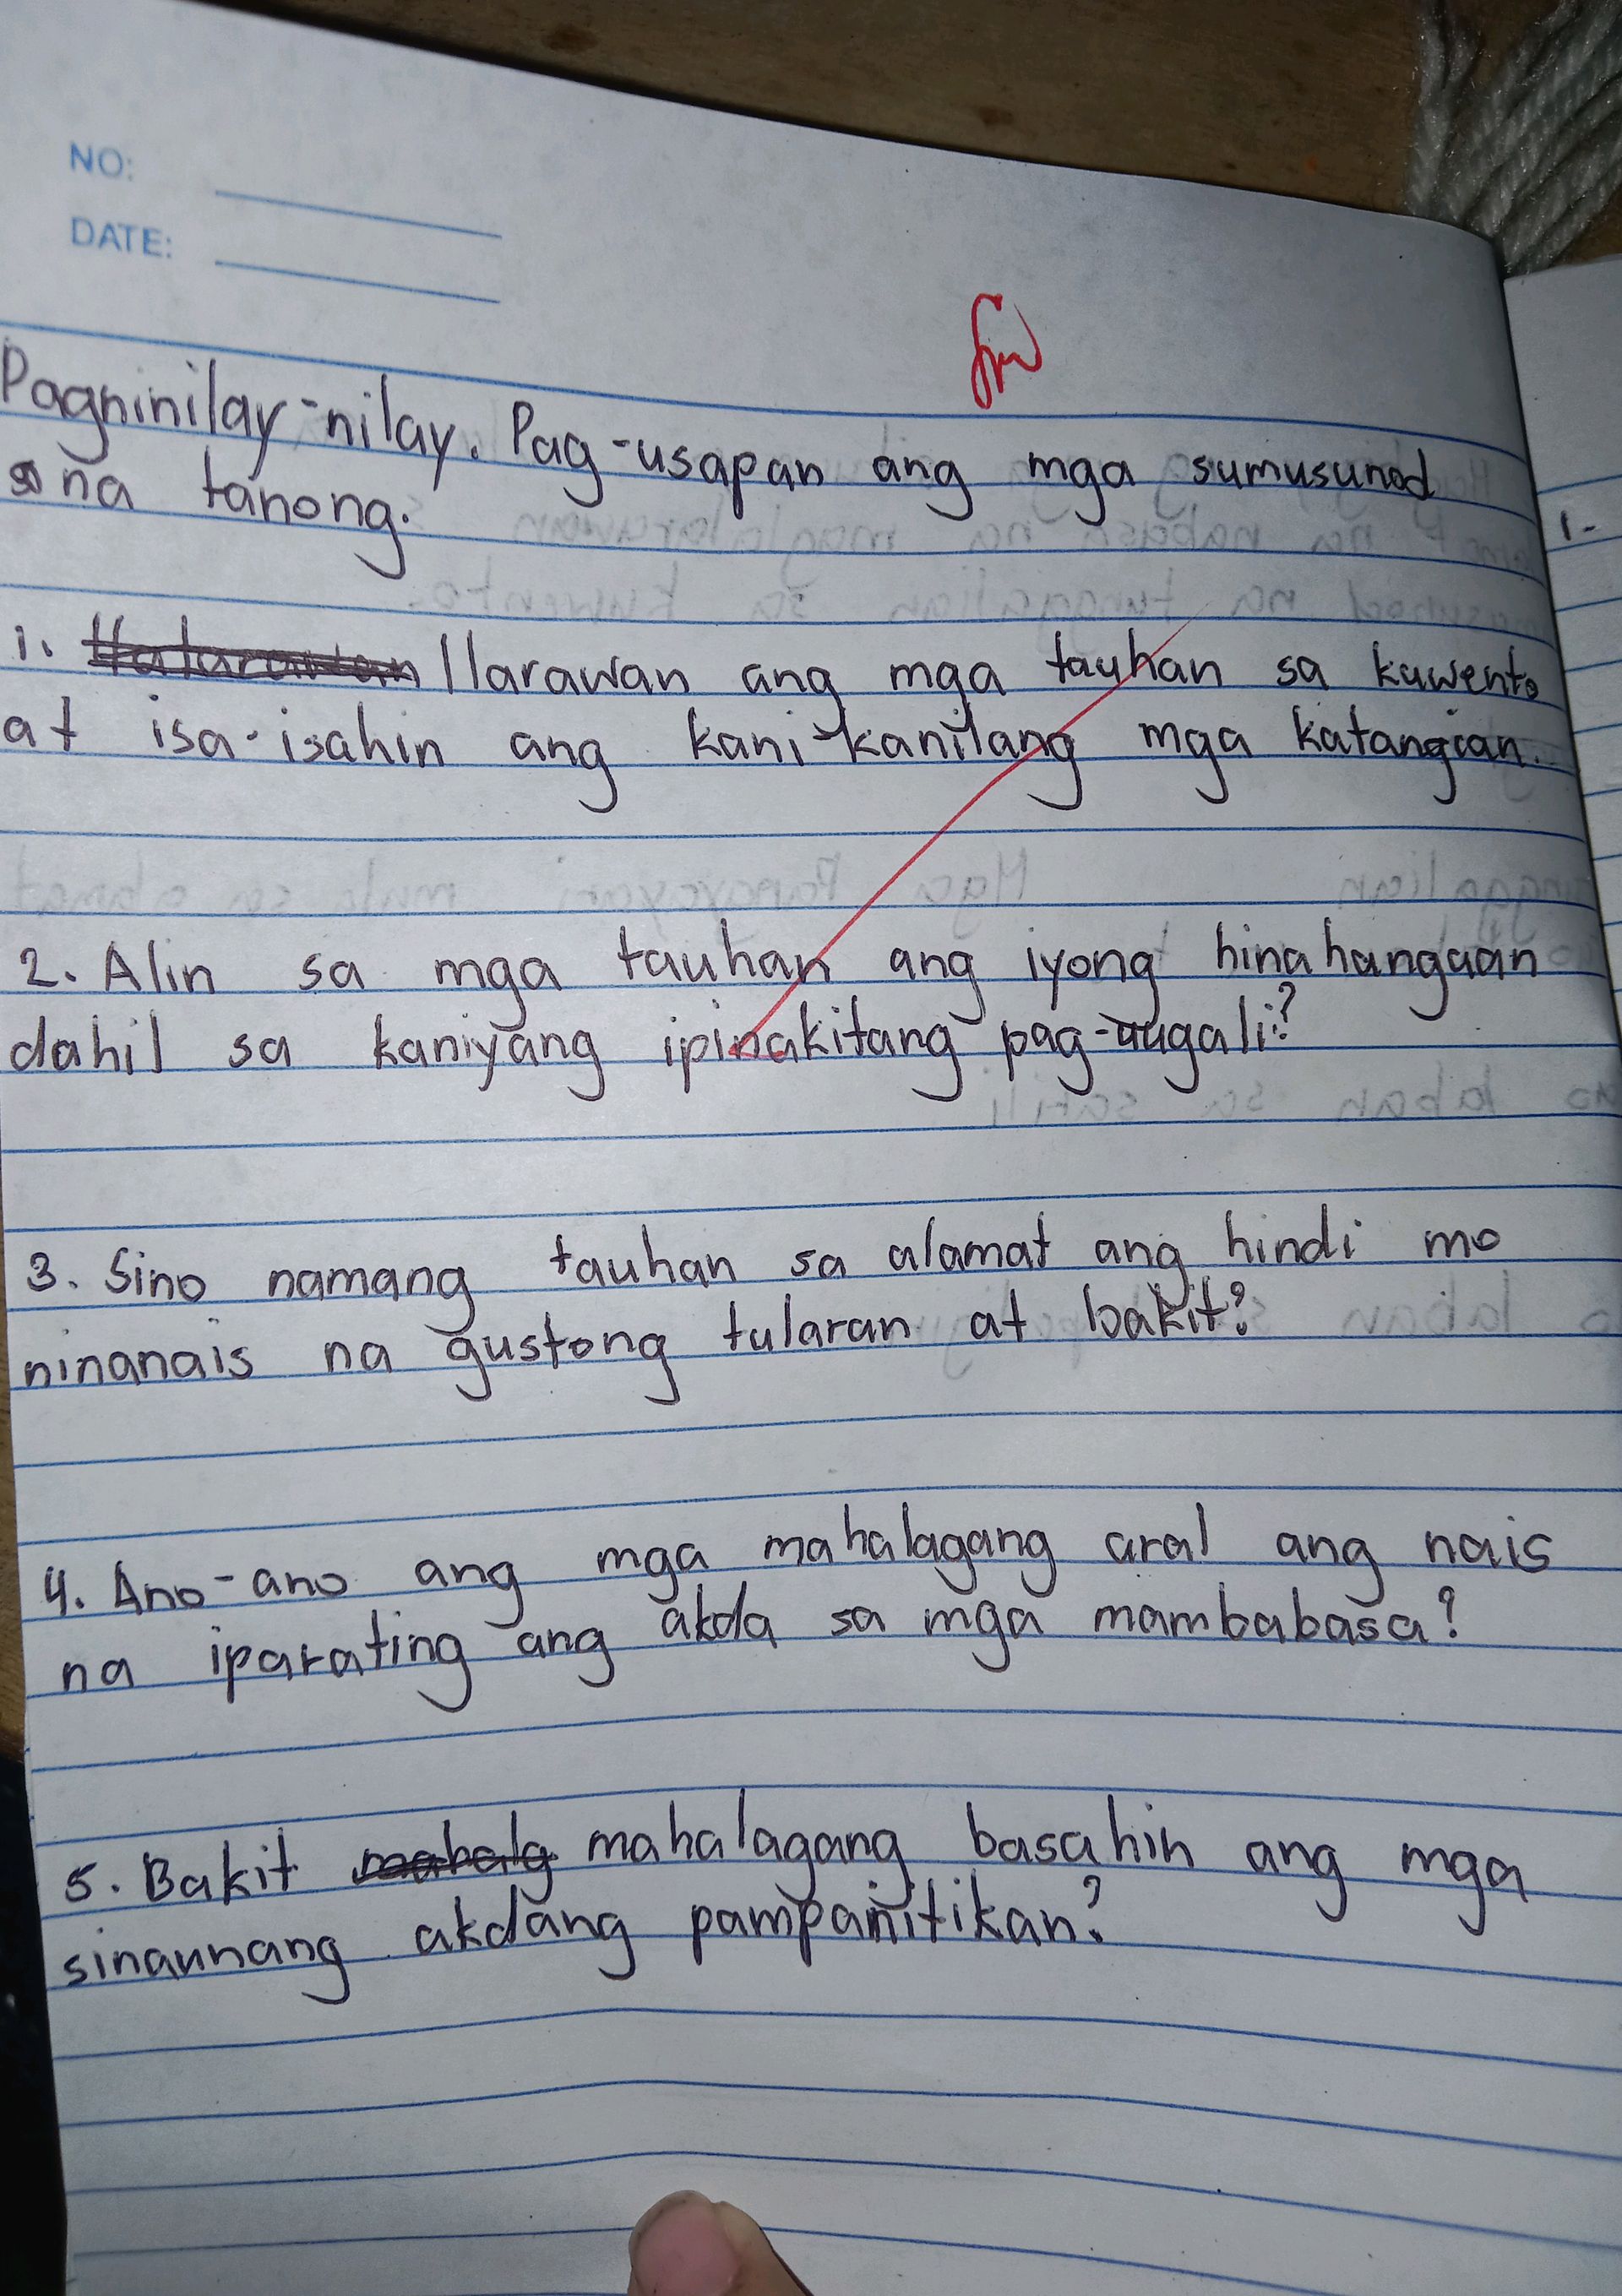 NO:
DATE:
Pagninilay-nilay. Pag-usapan ang mga sumusunod
na tanong.
1. Ilarawan ang mga tauhan sa kuwento
at isa-isahin ang kani-kanilang mga katangian.
2. Alin sa mga tauhan ang iyong hinahangaan
dahil sa kaniyang ipinakitang pag-uugali?
3. Sino namang tauhan sa alamat ang hindi mo
ninanais na gustong tularan at bakit?
4. Ano-ano ang mga mahalagang aral ang nais
na iparating ang akda sa mga mambabasa?
5. Bakit mahalagang basahin ang mga
sinaunang akdang pampanitikan?
1-